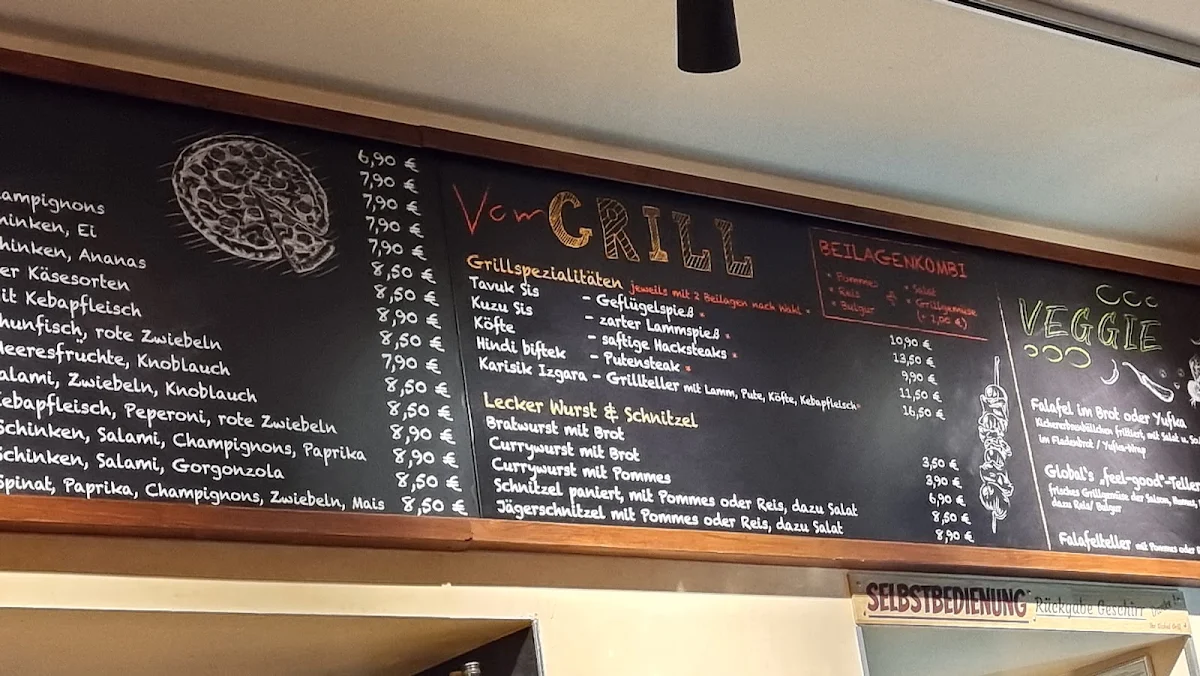 6,90 €
7,90 €
7,90 €
7,90 €
ampignons 7,90 €
hinken, Ei 8,50 €
hinken, Ananas 8,50 €
er Käsesorten 8,90 €
it Kebapfleisch 8,50 €
hunfisch, rote Zwiebeln 7,90 €
eeresfruchte, Knoblauch 8,50 €
alami, Zwiebeln, Knoblauch 8,50 €
ebapfleisch, Peperoni, rote Zwiebeln 8,90 €
Schinken, Salami, Champignons, Paprika 8,90 €
Schinken, Salami, Gorgonzola 8,50 €
Spinat, Paprika, Champignons, Zwiebeln, Mais 8,50 €
Vom GRILL
Grillspezialitäten jeweils mit 2 Beilagen nach Wahl *
Tavuk Sis - Geflügelspieß * 10,90 €
Kuzu Sis - zarter Lammspieß * 13,50 €
Köfte - saftige Hacksteaks * 9,90 €
Hindi biftek - Putensteak * 11,50 €
Karisik Izgara - Grillteller mit Lamm, Pute, Köfte, Kebapfleisch * 16,50 €
BEILAGENKOMBI
* Pommes * Salat
* Reis + * Grillgemüse
* Bulgur (+ 1,00 €)
Lecker Wurst & Schnitzel
Bratwurst mit Brot 3,50 €
Currywurst mit Brot 3,90 €
Currywurst mit Pommes 6,90 €
Schnitzel paniert, mit Pommes oder Reis, dazu Salat 8,50 €
Jägerschnitzel mit Pommes oder Reis, dazu Salat 8,90 €
VEGGIE
Falafel im Brot oder Yufka
Kichererbsenbällchen frittiert, mit Salat u. So
im Fladenbrot / Yufka-Wrap
Global's „feel-good"-Teller
frisches Grillgemüse der Saison, Humus
dazu Reis/ Bulgur
Falafelteller mit Pommes oder
SELBSTBEDIENUNG Rückgabe Geschirr